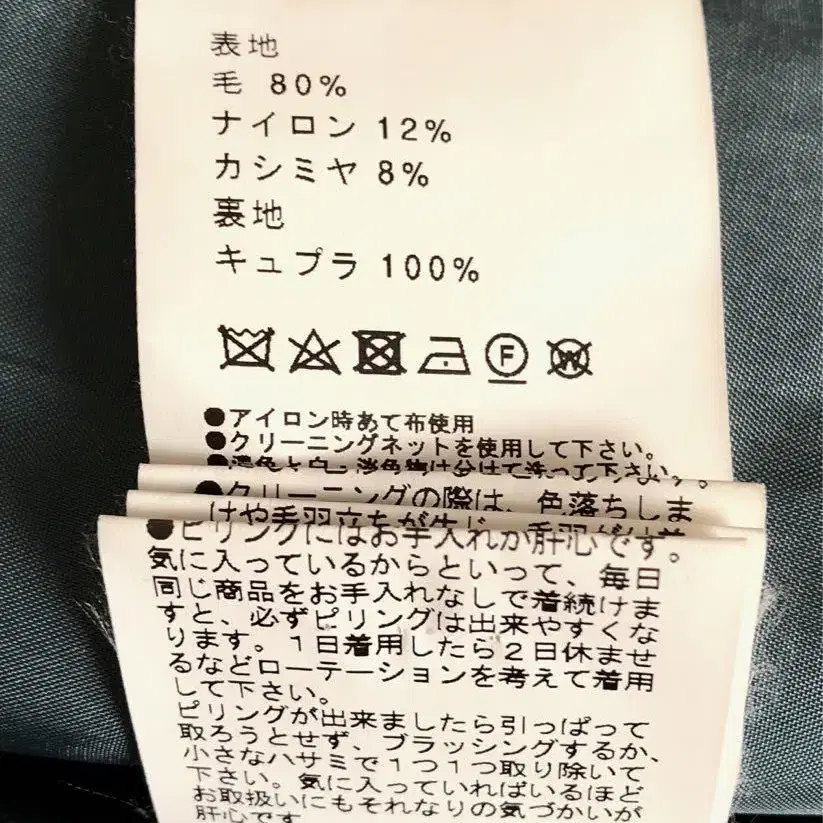 表地
毛 80%
ナイロン 12%
カシミヤ 8%
裏地
キュプラ 100%
F W
●アイロン時あて布使用
●クリーニングネットを使用して下さい。
●濃色と白・淡色物は分けて洗って下さい。
●クリーニングの際は、色落ちしま
けや毛羽立ちが生じ
●ピリングにはお手入れが肝心です。
気に入っているからといって、毎日
同じ商品をお手入れなしで着続けま
すと、必ずピリングは出来やすくな
ります。1日着用したら2日休ませ
るなどローテーションを考えて着用
して下さい。
ピリングが出来ましたら引っぱって
取ろうとせず、ブラッシングするか、
小さなハサミで1つ1つ取り除いて
下さい。気に入っていればいるほど
お取扱いにもそれなりの気づかいが
肝心です